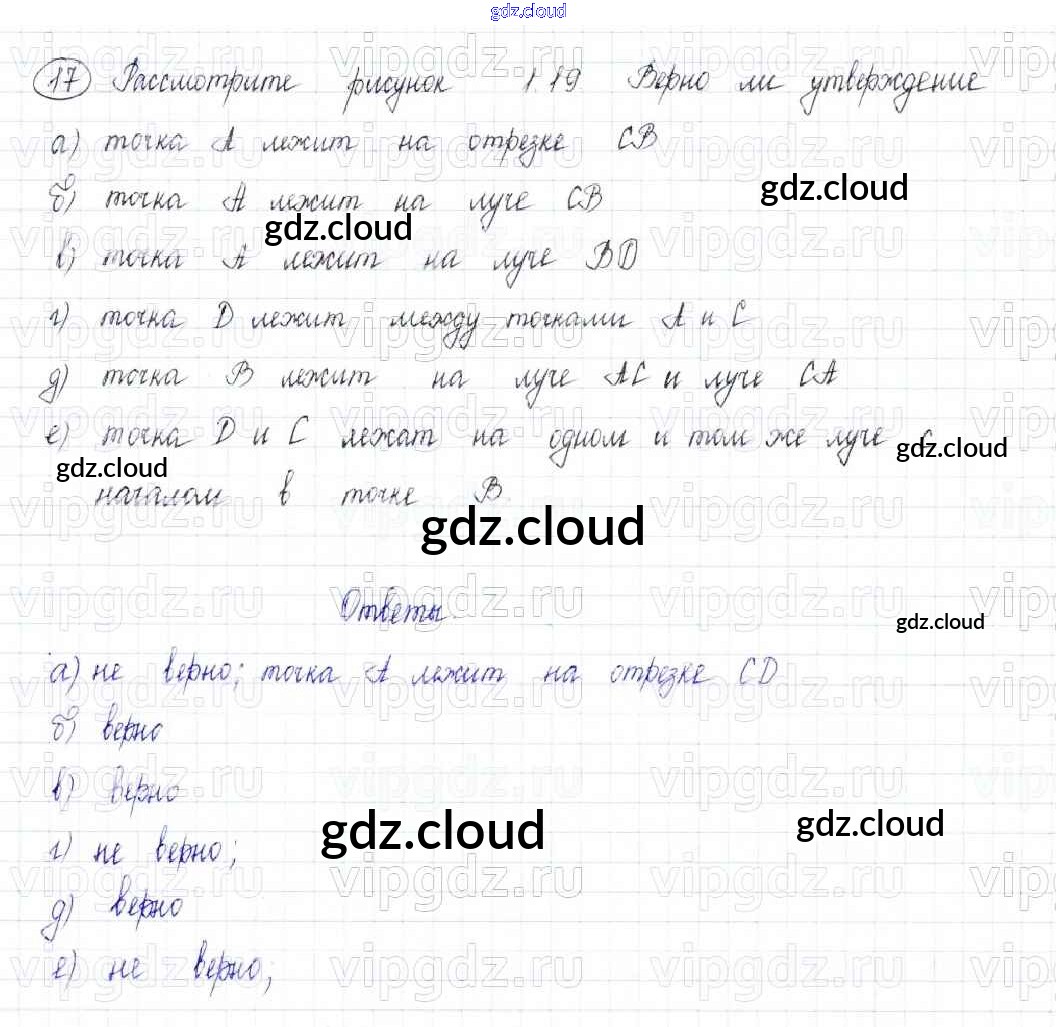 gdz.cloud
17 Рассмотрите рисунок 1.19 Верно ли утверждение
а) точка А лежит на отрезке СВ
б) точка А лежит на луче СВ
gdz.cloud
gdz.cloud
в) точка А лежит на луче ВD
г) точка D лежит между точками А и С
д) точка В лежит на луче АС и луче СА
е) точка D и С лежат на одном и том же луче с
gdz.cloud
gdz.cloud
началом в точке В.
gdz.cloud
Ответы.
gdz.cloud
а) не верно; точка А лежит на отрезке СD
б) верно
в) верно
gdz.cloud
gdz.cloud
г) не верно;
д) верно
е) не верно;
vipgdz.ru